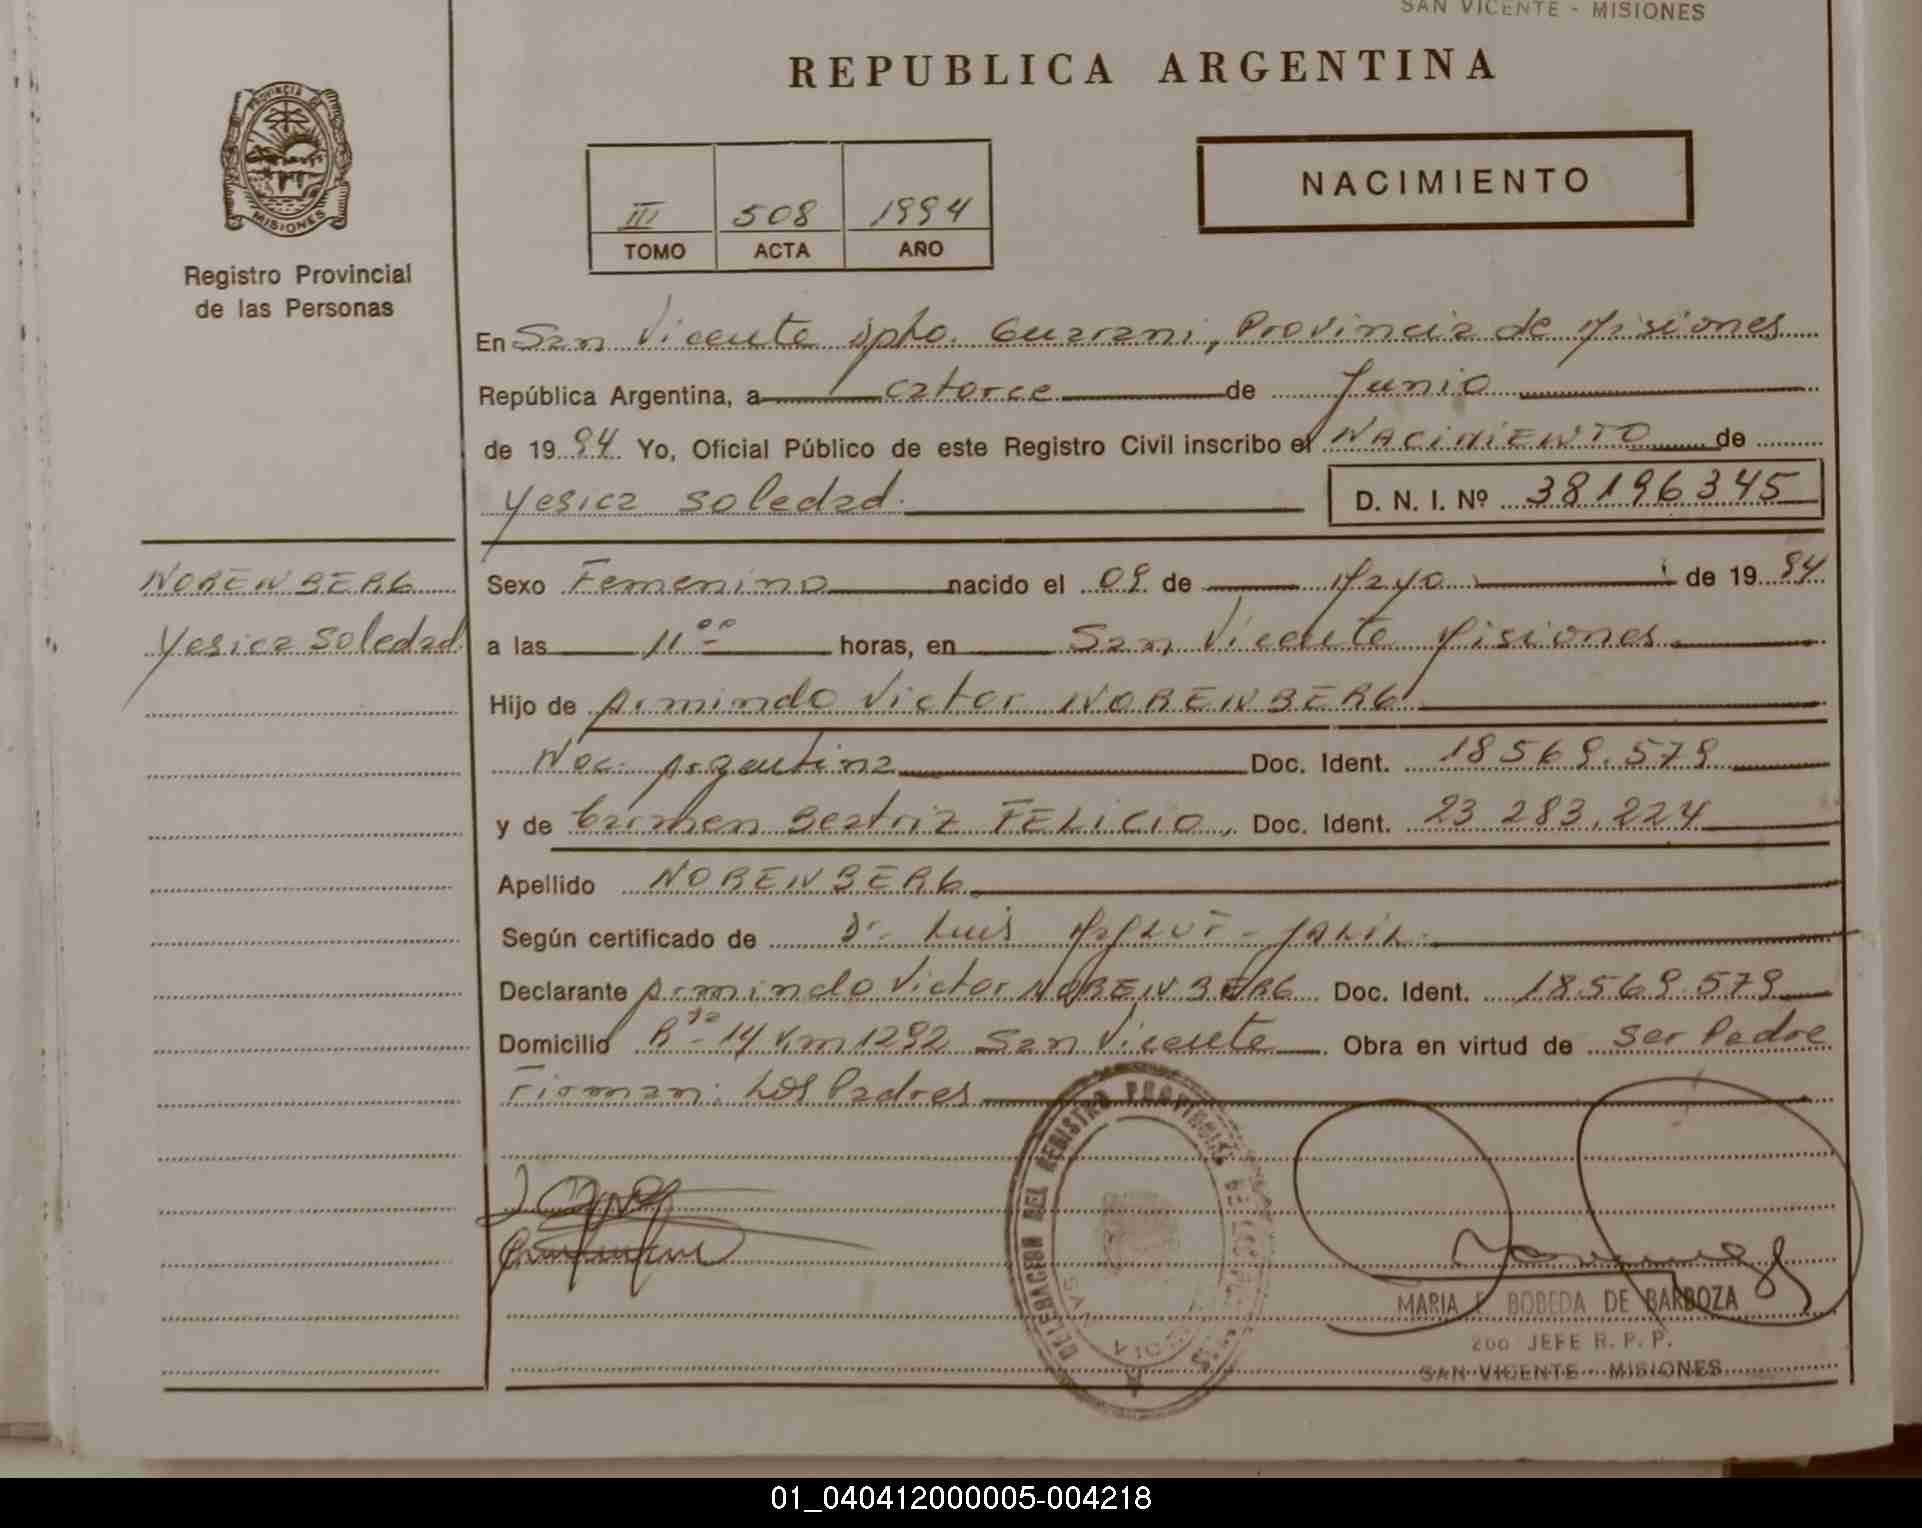 SAN VICENTE - MISIONES
REPUBLICA ARGENTINA
PROVINCIA DE
MISIONES
Registro Provincial
de las Personas
III 508 1994
TOMO ACTA AÑO
NACIMIENTO
En San Vicente Dpto. Guarani, Provincia de Misiones
República Argentina, a catorce de Junio
de 1994 Yo, Oficial Público de este Registro Civil inscribo el NACIMIENTO de
Yesica Soledad. D. N. I. Nº 38196345
NORENBERG
Yesica Soledad
Sexo Femenino nacido el 09 de Mayo de 1994
a las 11 00 horas, en San Vicente Misiones
Hijo de Armindo Victor NORENBERG
Nac. Argentina Doc. Ident. 18569.579
y de Carmen Beatriz FELICIO, Doc. Ident. 23 283.224
Apellido NORENBERG
Según certificado de Dr. Luis
Declarante Armindo Victor NORENBERG Doc. Ident. 18.569.579
Domicilio R ta 14 Km 1292 San Vicente Obra en virtud de ser Padre
Firman: Los Padres
DELEGACION DEL REGISTRO PROVINCIAL DE LAS PERSONAS
SAN VICENTE
MARIA E. BOBEDA DE BARBOZA
2do JEFE R. P. P.
SAN VICENTE - MISIONES
01_040412000005-004218